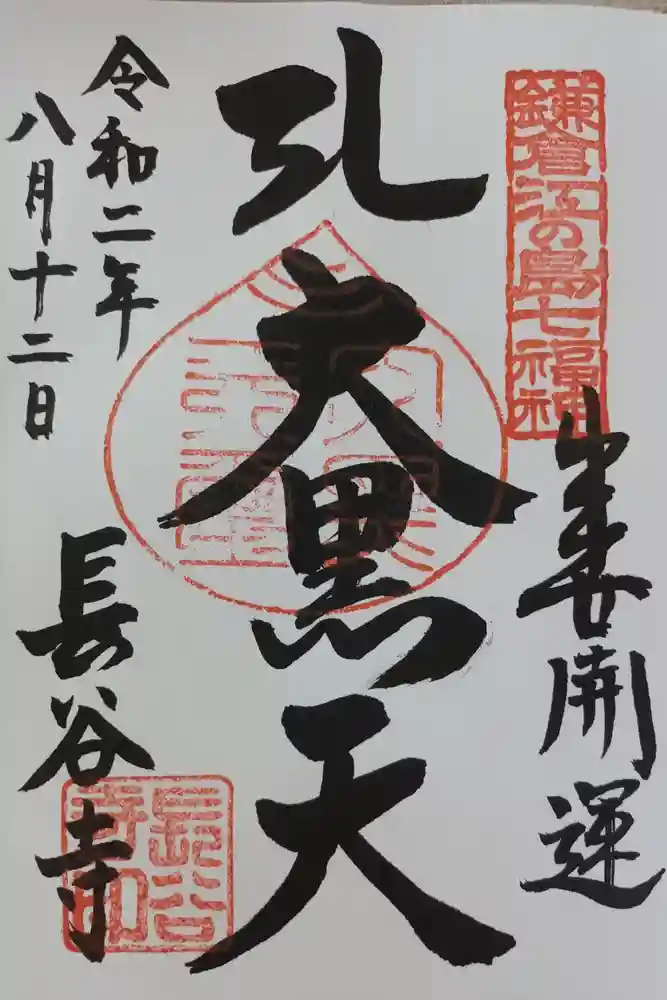 鎌倉江の島七福神
開運
大黒天
令和二年
八月十二日
長谷寺
長谷寺印